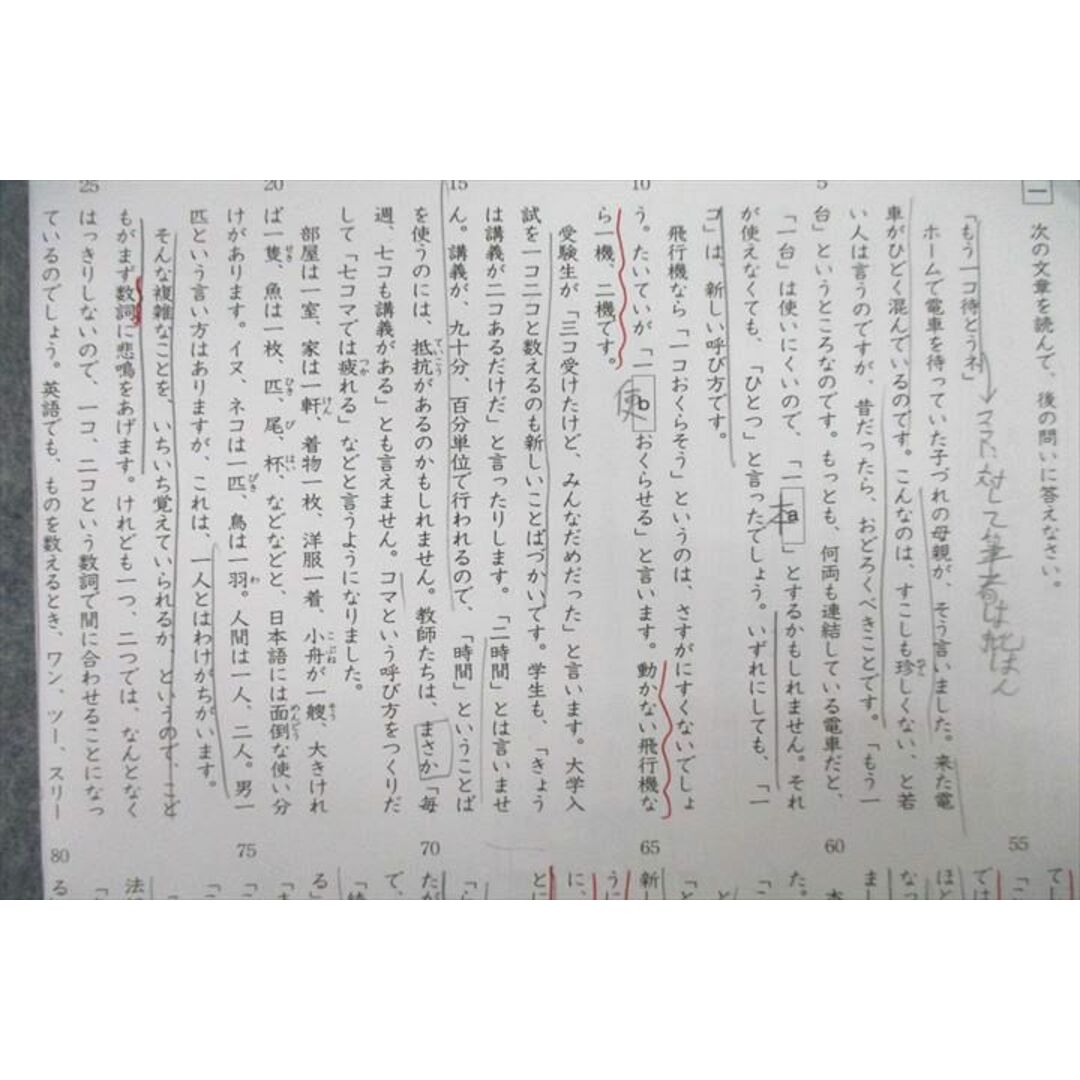 一 次の文章を読んで、後の問いに答えなさい。
「もう一コ待とうネ」
ホームで電車を待っていた子づれの母親が、そう言いました。来た電
車がひどく混んでいるのです。こんなのは、すこしも珍しくない、と若
い人は言うのですが、昔だったら、おどろくべきことです。「もう一
台」というところなのです。もっとも、何両も連結している電車だと、
「一台」は使いにくいので、「一a」とするかもしれません。それ
が使えなくても、「ひとつ」と言ったでしょう。いずれにしても、「一
コ」は、新しい呼び方です。
飛行機なら「一コおくらそう」というのは、さすがにすくないでしょ
う。たいていが「一bおくらせる」と言います。動かない飛行機な
ら一機、二機です。
受験生が「三コ受けたけど、みんなだめだった」と言います。大学入
試を一コ二コと数えるのも新しいことばづかいです。学生も、「きょう
は講義が二コあるだけだ」と言ったりします。「二時間」とは言いませ
ん。講義が、九十分、百分単位で行われるので、「時間」ということば
を使うのには、抵抗があるのかもしれません。教師たちは、まさか「毎
週、七コも講義がある」とも言えません。コマという呼び方をつくりだ
して「七コマでは疲れる」などと言うようになりました。
部屋は一室、家は一軒、着物一枚、洋服一着、小舟が一艘、大きけれ
ば一隻、魚は一枚、匹、尾、杯、などなどと、日本語には面倒な使い分
けがあります。イヌ、ネコは一匹、鳥は一羽。人間は一人、二人。男一
匹という言い方はありますが、これは、一人とはわけがちがいます。
そんな複雑なことを、いちいち覚えていられるか、というので、こど
もがまず数詞に悲鳴をあげます。けれども一つ、二つでは、なんとなく
はっきりしないので、一コ、二コという数詞で間に合わせることになっ
ているのでしょう。英語でも、ものを数えるとき、ワン、ツー、スリー
5
10
15
20
25
55
60
65
70
75
80
本
使